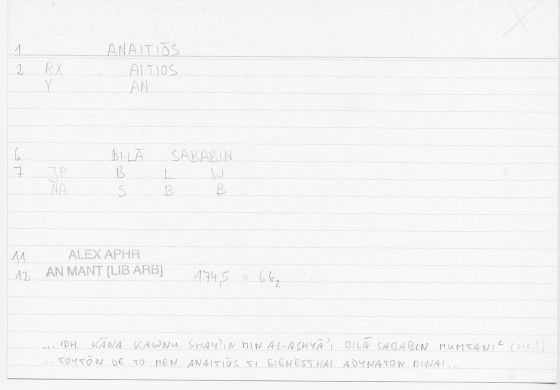 1 ANAITIŌS
2 RX AITIOS
Y AN
6 BILĀ SABABIN
7 JP B L W
NA S B B
11 ALEX APHR
12 AN MANT [LIB ARB] 174,5 = 66₂
...IDH KĀNA KAWNU SHAY'IN MIN AL-ASHYĀ'I BILĀ SABABIN MUMTANIᶜ (sic!)
...TOYTŌN DE TO MEN ANAITIŌS TI GIGNESTHAI ADYNATON EINAI...